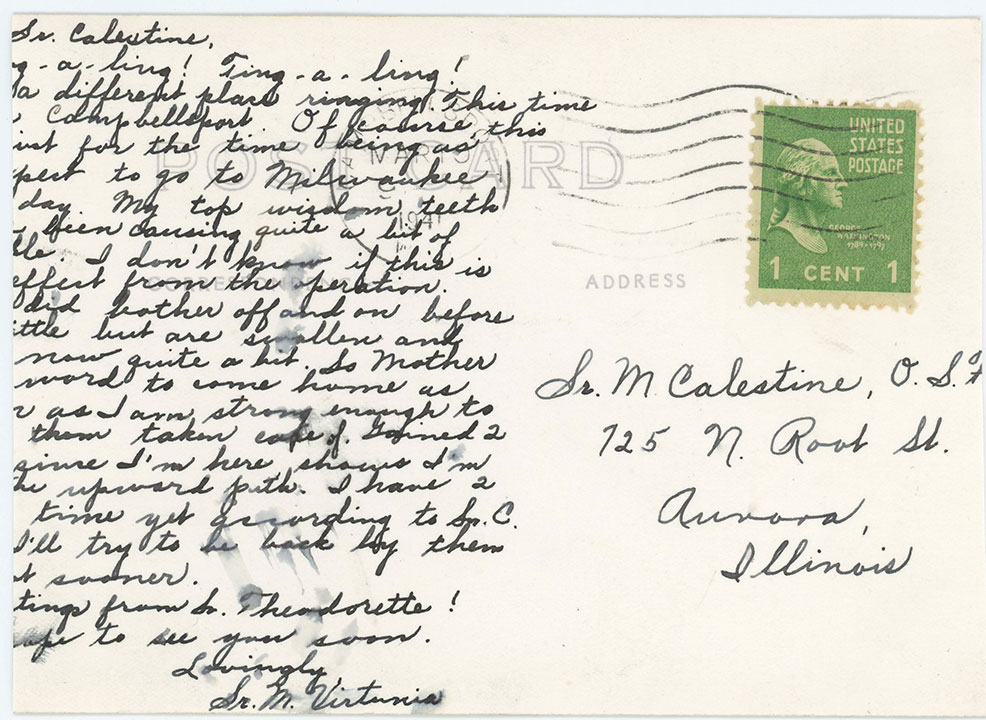 Sr. Calestine,
g-a-ling! Ting-a-ling!
a different place ringing. This time
Campbellsport Of course this
ust for the time being as
pect to go to Milwaukee
day. My top wisdom teeth
been causing quite a bit of
le. I don't know if this is
effect from the operation.
did bother off and on before
ittle but are swollen and
now quite a bit. So Mother
word to come home as
n as I am strong enough to
them taken care of. Gained 2
since I'm here, shows I'm
he upward path. I have 2
time yet according to Sr. C.
I'll try to be back by them
t sooner.
tings from Sr. Theodorette!
ope to see you soon.
Lovingly,
Sr. M. Virtunia
POST CARD
MAR
194
CORRESPONDENCE
ADDRESS
UNITED
STATES
POSTAGE
GEORGE
WASHINGTON
1789-1797
1 CENT 1
Sr. M Calestine, O.S.F
725 N. Root St.
Aurora,
Illinois